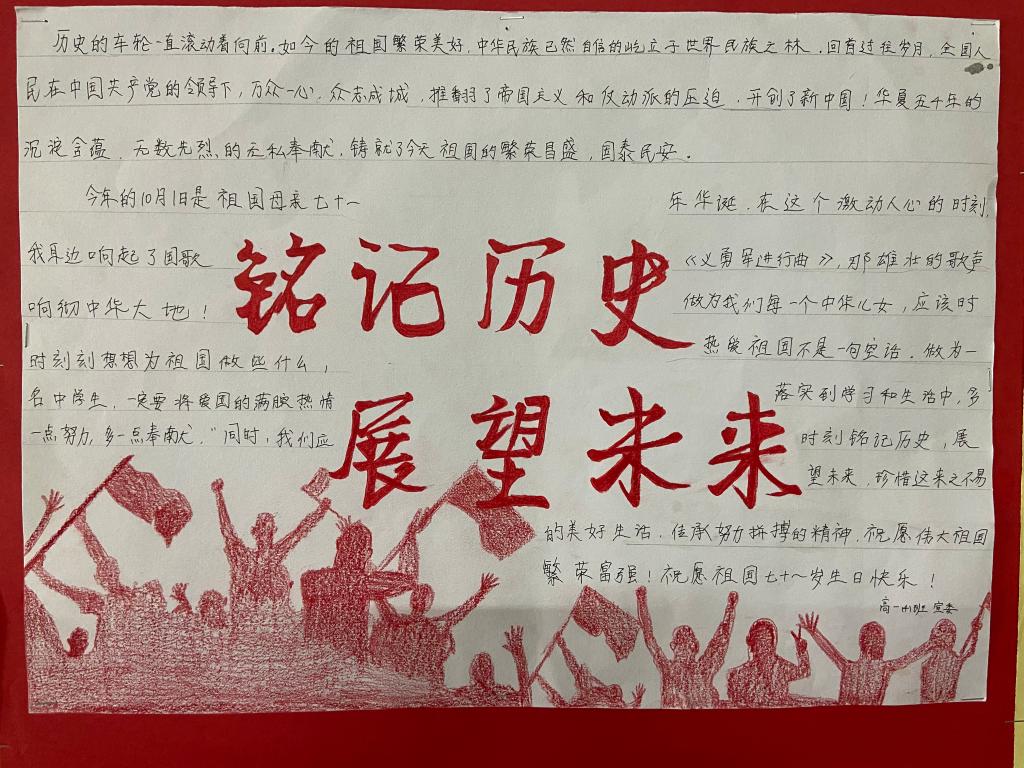 历史的车轮一直滚动着向前.如今的祖国繁荣美好,中华民族已然自信的屹立于世界民族之林.回首过往岁月,全国人
民在中国共产党的领导下,万众一心,众志成城,推翻了帝国主义和反动派的压迫,开创了新中国!华夏五千年的
沉淀含蕴,无数先烈的无私奉献,铸就了今天祖国的繁荣昌盛,国泰民安.
今年的10月1日是祖国母亲七十一年华诞.在这个激动人心的时刻,
我耳边响起了国歌《义勇军进行曲》,那雄壮的歌声
响彻中华大地!做为我们每一个中华儿女,应该时
时刻刻想想为祖国做些什么,热爱祖国不是一句空话.做为一
名中学生,一定要将爱国的满腔热情落实到学习和生活中,多
一点努力,多一点奉献."同时,我们应时刻铭记历史,展
望未来,珍惜这来之不易
的美好生活.传承努力拼搏的精神.祝愿伟大祖国
繁荣富强!祝愿祖国七十一岁生日快乐!
铭记历史
展望未来
高一 班宣委